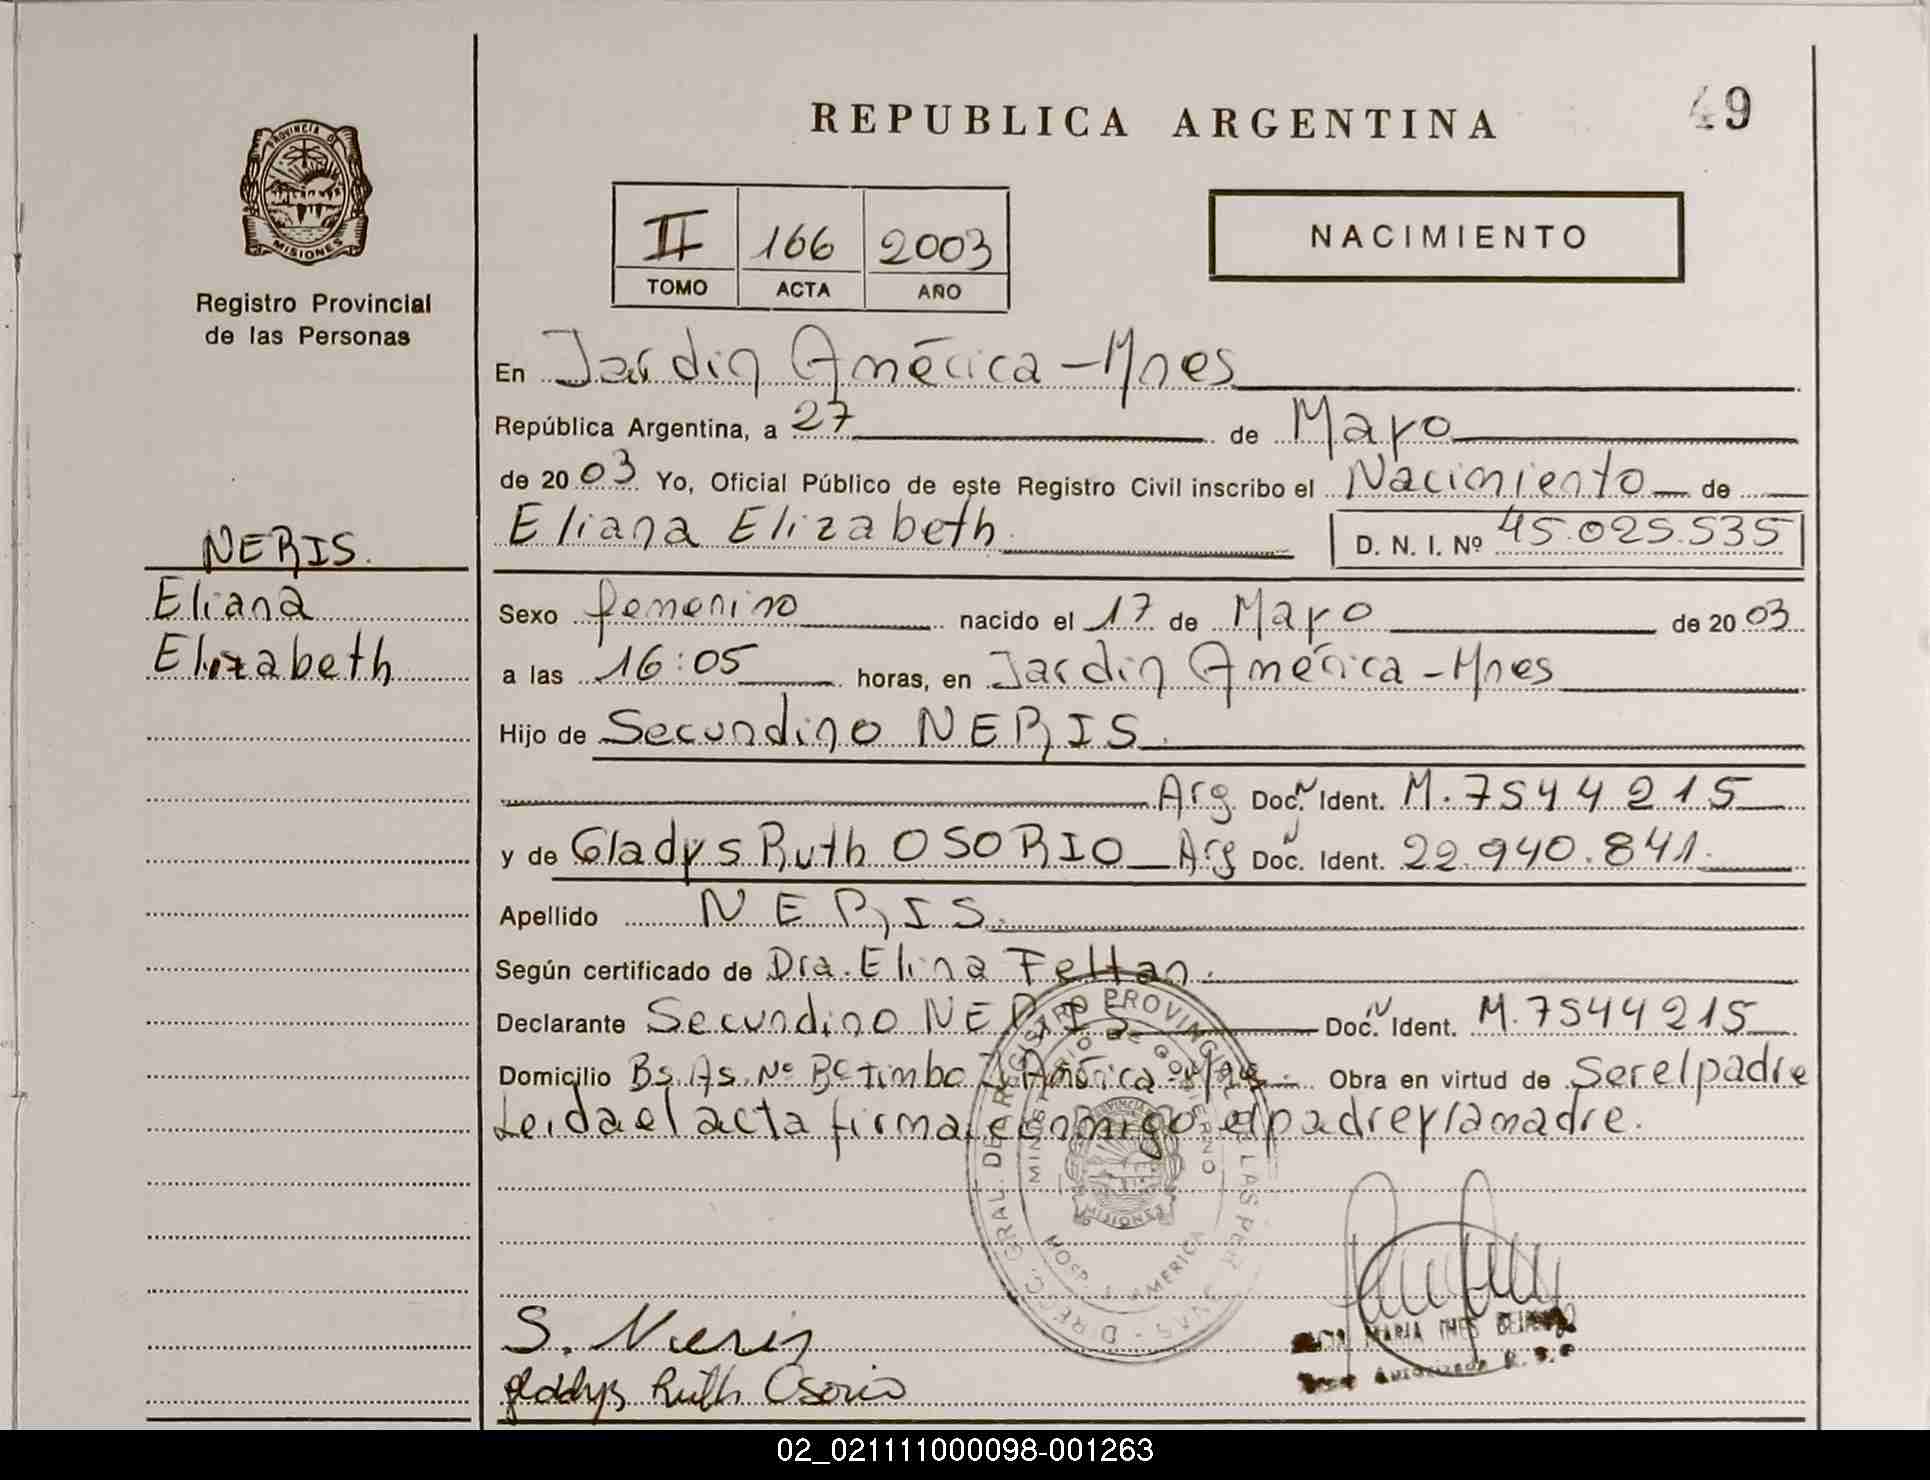 REPUBLICA ARGENTINA
49
PROVINCIA DE
MISIONES
Registro Provincial
de las Personas
II 166 2003
TOMO ACTA AÑO
NACIMIENTO
En Jardin América - Mnes
República Argentina, a 27 de Mayo
de 2003 Yo, Oficial Público de este Registro Civil inscribo el Nacimiento de
Eliana Elizabeth D. N. I. Nº 45.025.535
NERIS.
Eliana
Elizabeth
Sexo femenino nacido el 17 de Mayo de 2003
a las 16:05 horas, en Jardin América - Mnes
Hijo de Secundino NERIS.
Arg Doc. N Ident. M. 7544215
y de Gladys Ruth OSORIO Arg Doc. N Ident. 22.940.841.
Apellido NERIS.
Según certificado de Dra. Elina Feltan.
Declarante Secundino NERIS Doc. N Ident. M. 7544215
Domicilio Bs. As. Nº Bº Timbo J. América - Mnes. Obra en virtud de Ser el padre
Leida el acta firma conmigo el padre y la madre.
DIRECC. GRAL. DE REGISTRO PROVINCIAL DE LAS PERSONAS
MINISTERIO DE GOBIERNO
PROVINCIA
MISIONES
HOSP. J. AMERICA
S. Neris
gladys Ruth Osorio
MARIA INES
Autorizada R. P.
02_021111000098-001263